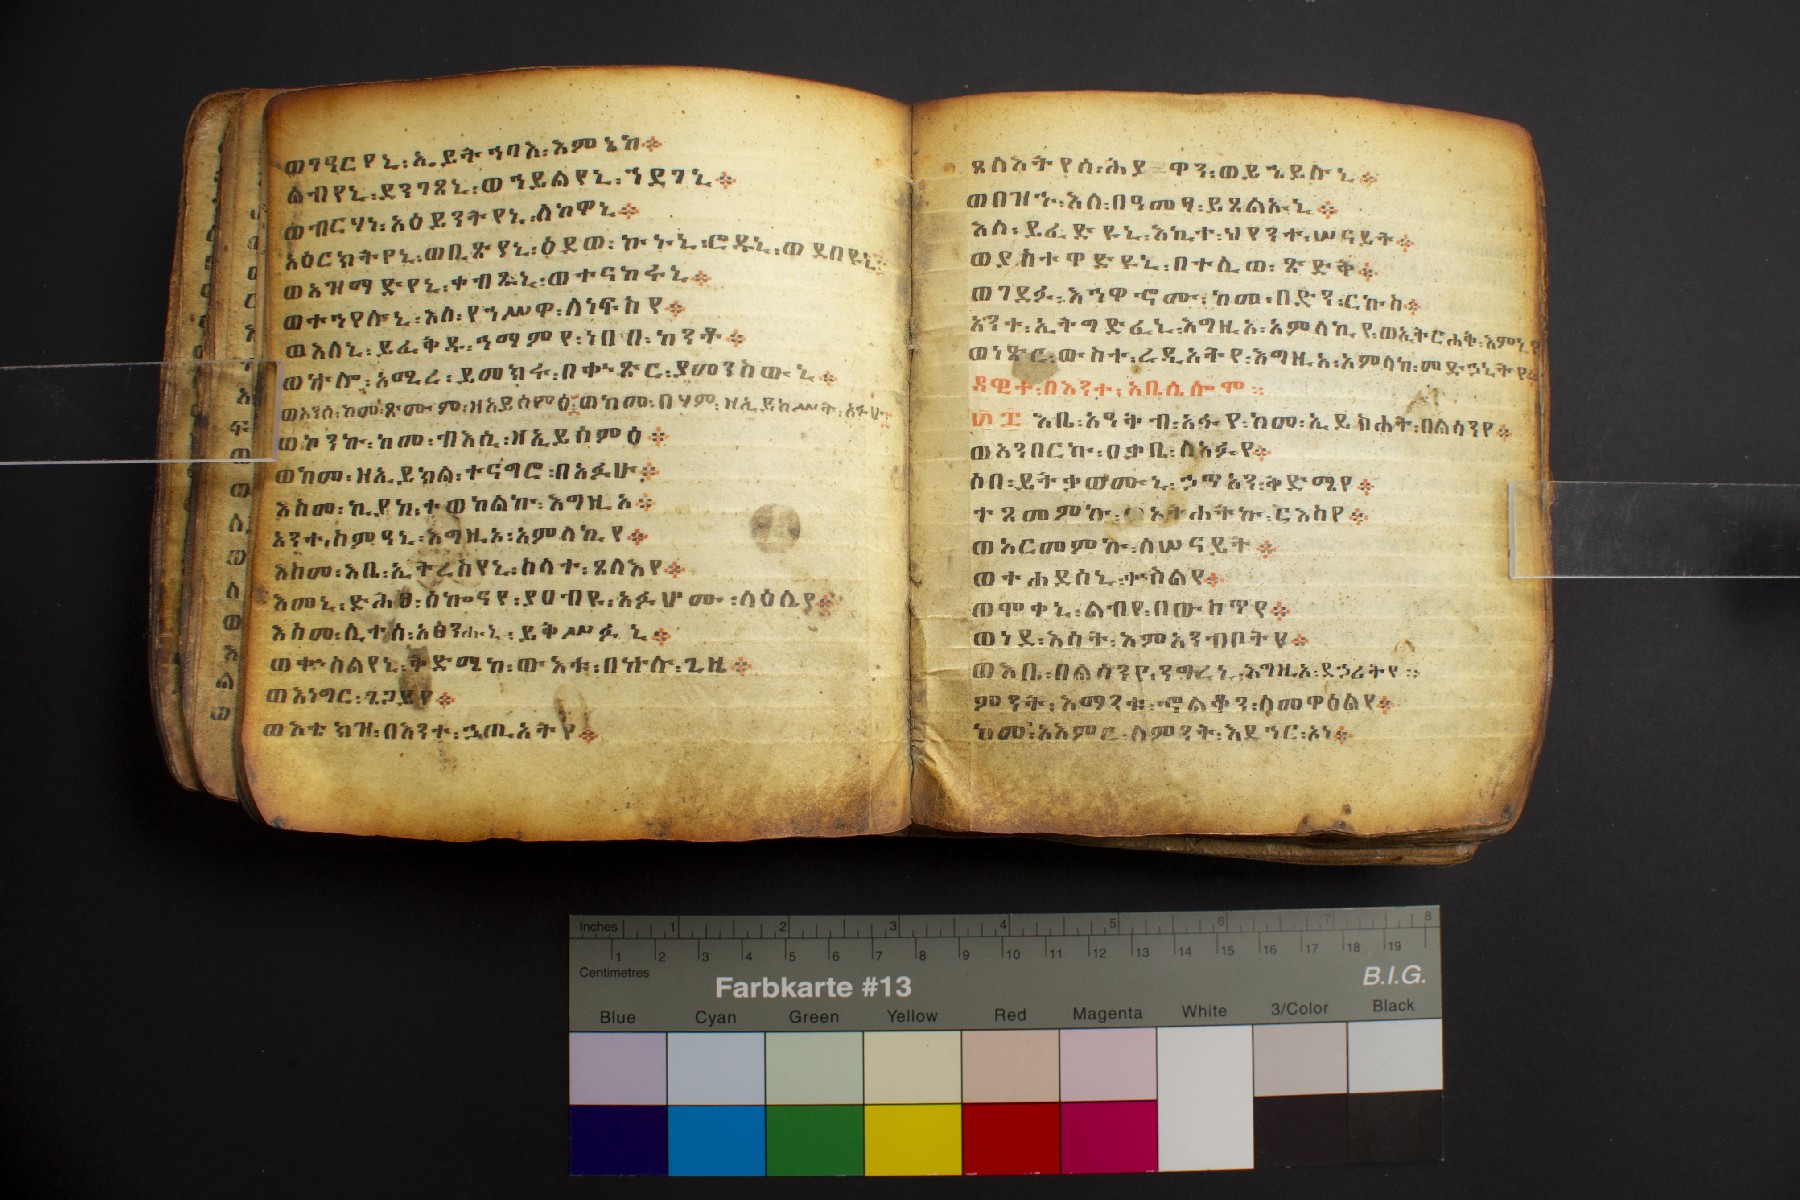 ወገዓርየኒ፡ኢይትኀባእ፡እምኔከ፨
ልብየኒ፡ደንገፀኒ፡ወኀይልየኒ፡ኀደገኒ፨
ወብርሃነ፡አዕይንትየኒ፡ለከዋኒ፨
አዕርክትየኒ፡ወቢጽየኒ፡ዕደወ፡ኮኑኒ፡ሮዱኒ፡ወደበዩኒ፨
ወአዝማድየኒ፡ቀብጹኒ፡ወተናከሩኒ፨
ወተኀየሉኒ፡እለ፡የኀሥዋ፡ለነፍስየ፨
ወእለኒ፡ይፈቅዱ፡ሕማምየ፡ነበቡ፡ከንቶ፨
ወኵሎ፡አሚረ፡ይመክሩ፡በቍጽር፡ያመንስውኒ፨
ወአንሰ፡ከመ፡ጽሙም፡ዘኢይሰምዕ፡ወከመ፡በሃም፡ዘኢይከሥት፡አፉሁ፨
ወኮንኩ፡ከመ፡ብእሲ፡ዘኢይሰምዕ፨
ወከመ፡ዘኢይክል፡ተናግሮ፡በአፉሁ፨
እስመ፡ኪያከ፡ተወከልኩ፡እግዚኦ፨
አንተ፡ስምዓኒ፡እግዚኦ፡አምላኪየ፨
እስመ፡እቤ፡ኢትረስየኒ፡ስላተ፡ፀላእየ፨
እመኒ፡ድሕፀ፡ሰኰናየ፡ያዐብዩ፡አፉሆሙ፡ላዕሌየ፨
እስመ፡ሊተሰ፡አፅንሑኒ፡ይቅሥፉኒ፨
ወቍስልየኒ፡ቅድሜከ፡ውእቱ፡በኵሉ፡ጊዜ፨
ወእነግር፡ጌጋይየ፨
ወእቴክዝ፡በእንተ፡ኃጢአትየ፨
ጸላእትየሰ፡ሕያዋን፡ወይኄይሉኒ፨
ወበዝኁ፡እለ፡በዓመፃ፡ይጸልኡኒ፨
እለ፡ይፈድዩኒ፡እኪተ፡ህየንተ፡ሠናይት፨
ወያስተዋድዩኒ፡በተሊወ፡ጽድቅ፨
ወገደፉ፡እኅዋኖሙ፡ከመ፡በድን፡ርኩስ፨
አንተ፡ኢትግድፈኒ፡እግዚኦ፡አምላኪየ፡ወኢትርሐቅ፡እምኒየ፨
ወነጽር፡ውስተ፡ረዲኦትየ፡እግዚኦ፡አምላከ፡መድኃኒትየ፨
ዳዊት፡በእንተ፡አቢሴሎም፨
፴፰ እቤ፡አዓቅብ፡አፉየ፡ከመ፡ኢይስሐት፡በልሳንየ፨
ወአንበርኩ፡ዐቃቤ፡ለአፉየ፨
ሶበ፡ይትቃወሙኒ፡ኃጥኣን፡ቅድሜየ፨
ተጸመምኩ፡ወአትሐትኩ፡ርእስየ፨
ወአርመምኩ፡ለሠናይት፨
ወተሐደሰኒ፡ቍስልየ፨
ወሞቀኒ፡ልብየ፡በውስጥየ፨
ወነደ፡እሳት፡እምአንብቦትየ፨
ወእቤ፡በልሳንየ፡ንግረኒ፡እግዚኦ፡ደኃሪትየ፨
ምንት፡እማንቱ፡ኆልቆን፡ለመዋዕልየ፨
ከመ፡አእምር፡ለምንት፡እደኀር፡አነ፨